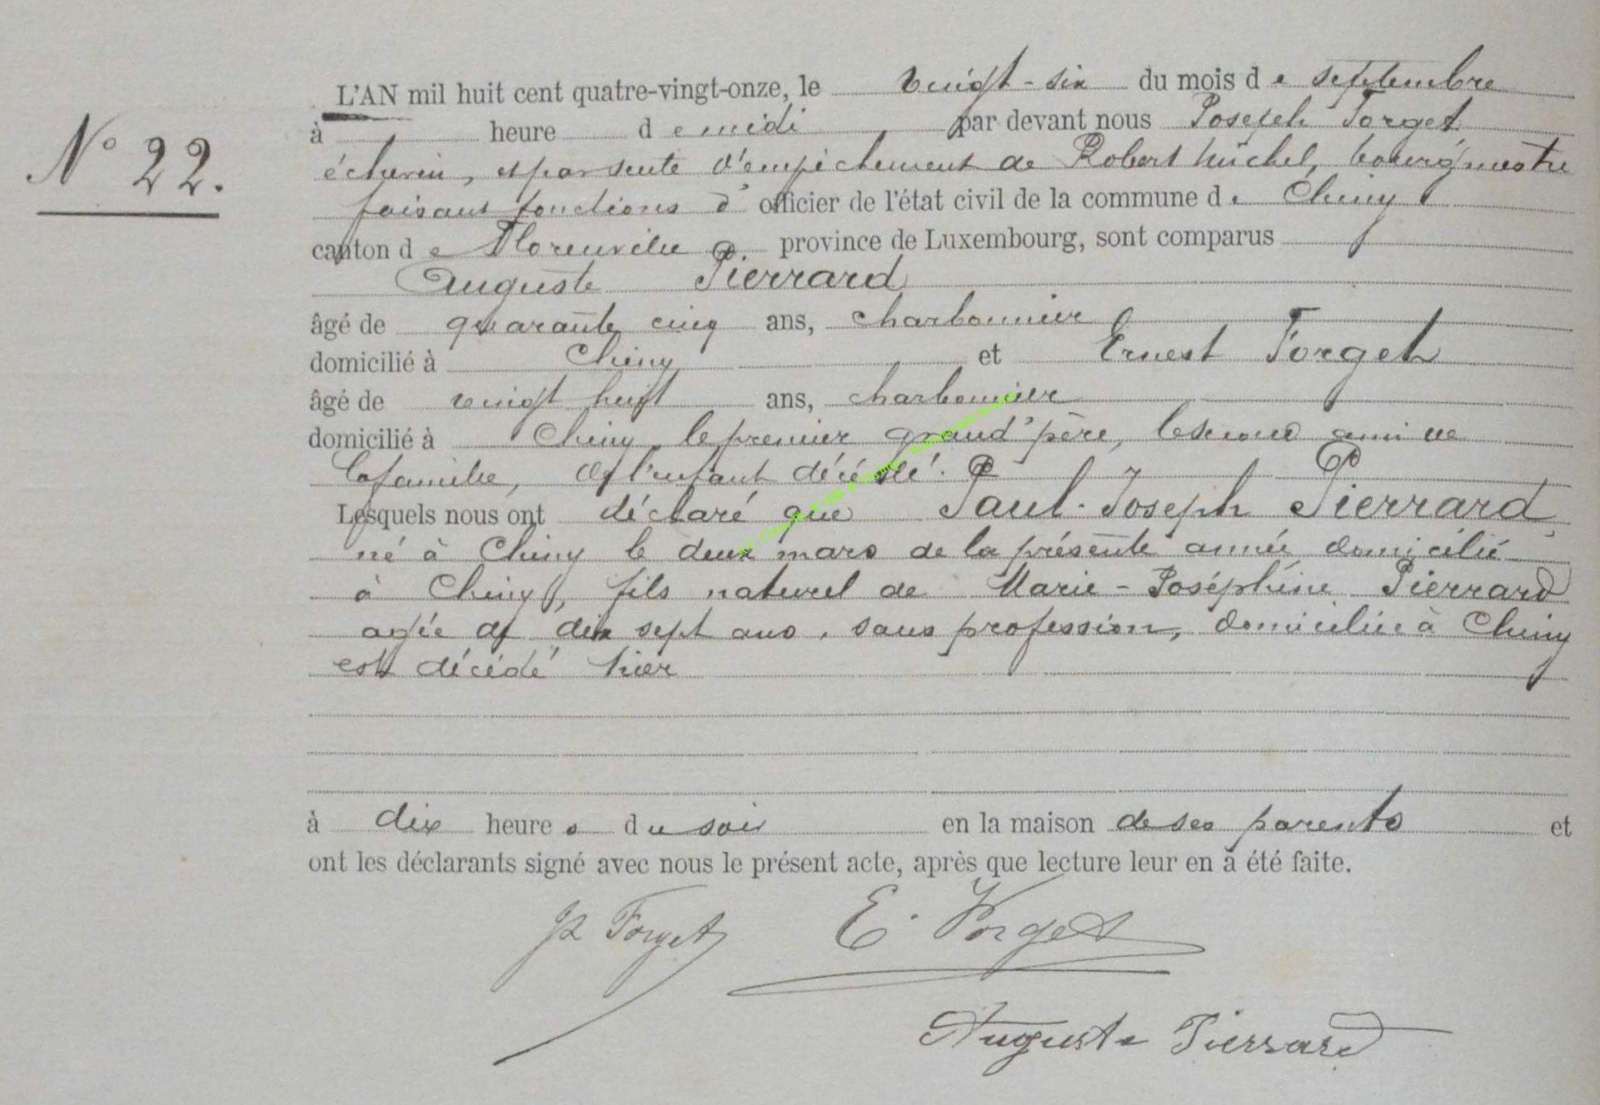 N° 22.
L'AN mil huit cent quatre-vingt-onze, le vingt-six du mois d e septembre
à heure d e midi par devant nous Joseph Forget
échevin, et par suite d'empêchement de Robert Michel, bourgmestre
faisant fonctions d' officier de l'état civil de la commune d e Chiny
canton d e Florenville province de Luxembourg, sont comparus
Auguste Pierrard
âgé de quarante cinq ans, charbonnier
domicilié à Chiny et Ernest Forget
âgé de vingt huit ans, charbonnier
domicilié à Chiny, le premier grand'père, le second ami de
la famille, de l'enfant décédé.
Lesquels nous ont déclaré que Paul-Joseph Pierrard
né à Chiny le deux mars de la présente année domicilié
à Chiny, fils naturel de Marie-Joséphine Pierrard
agée de dix sept ans, sans profession, domiciliée à Chiny
est décédé hier
à dix heure s d u soir en la maison de ses parents et
ont les déclarants signé avec nous le présent acte, après que lecture leur en a été faite.
Forget E. Forget
Auguste Pierrard